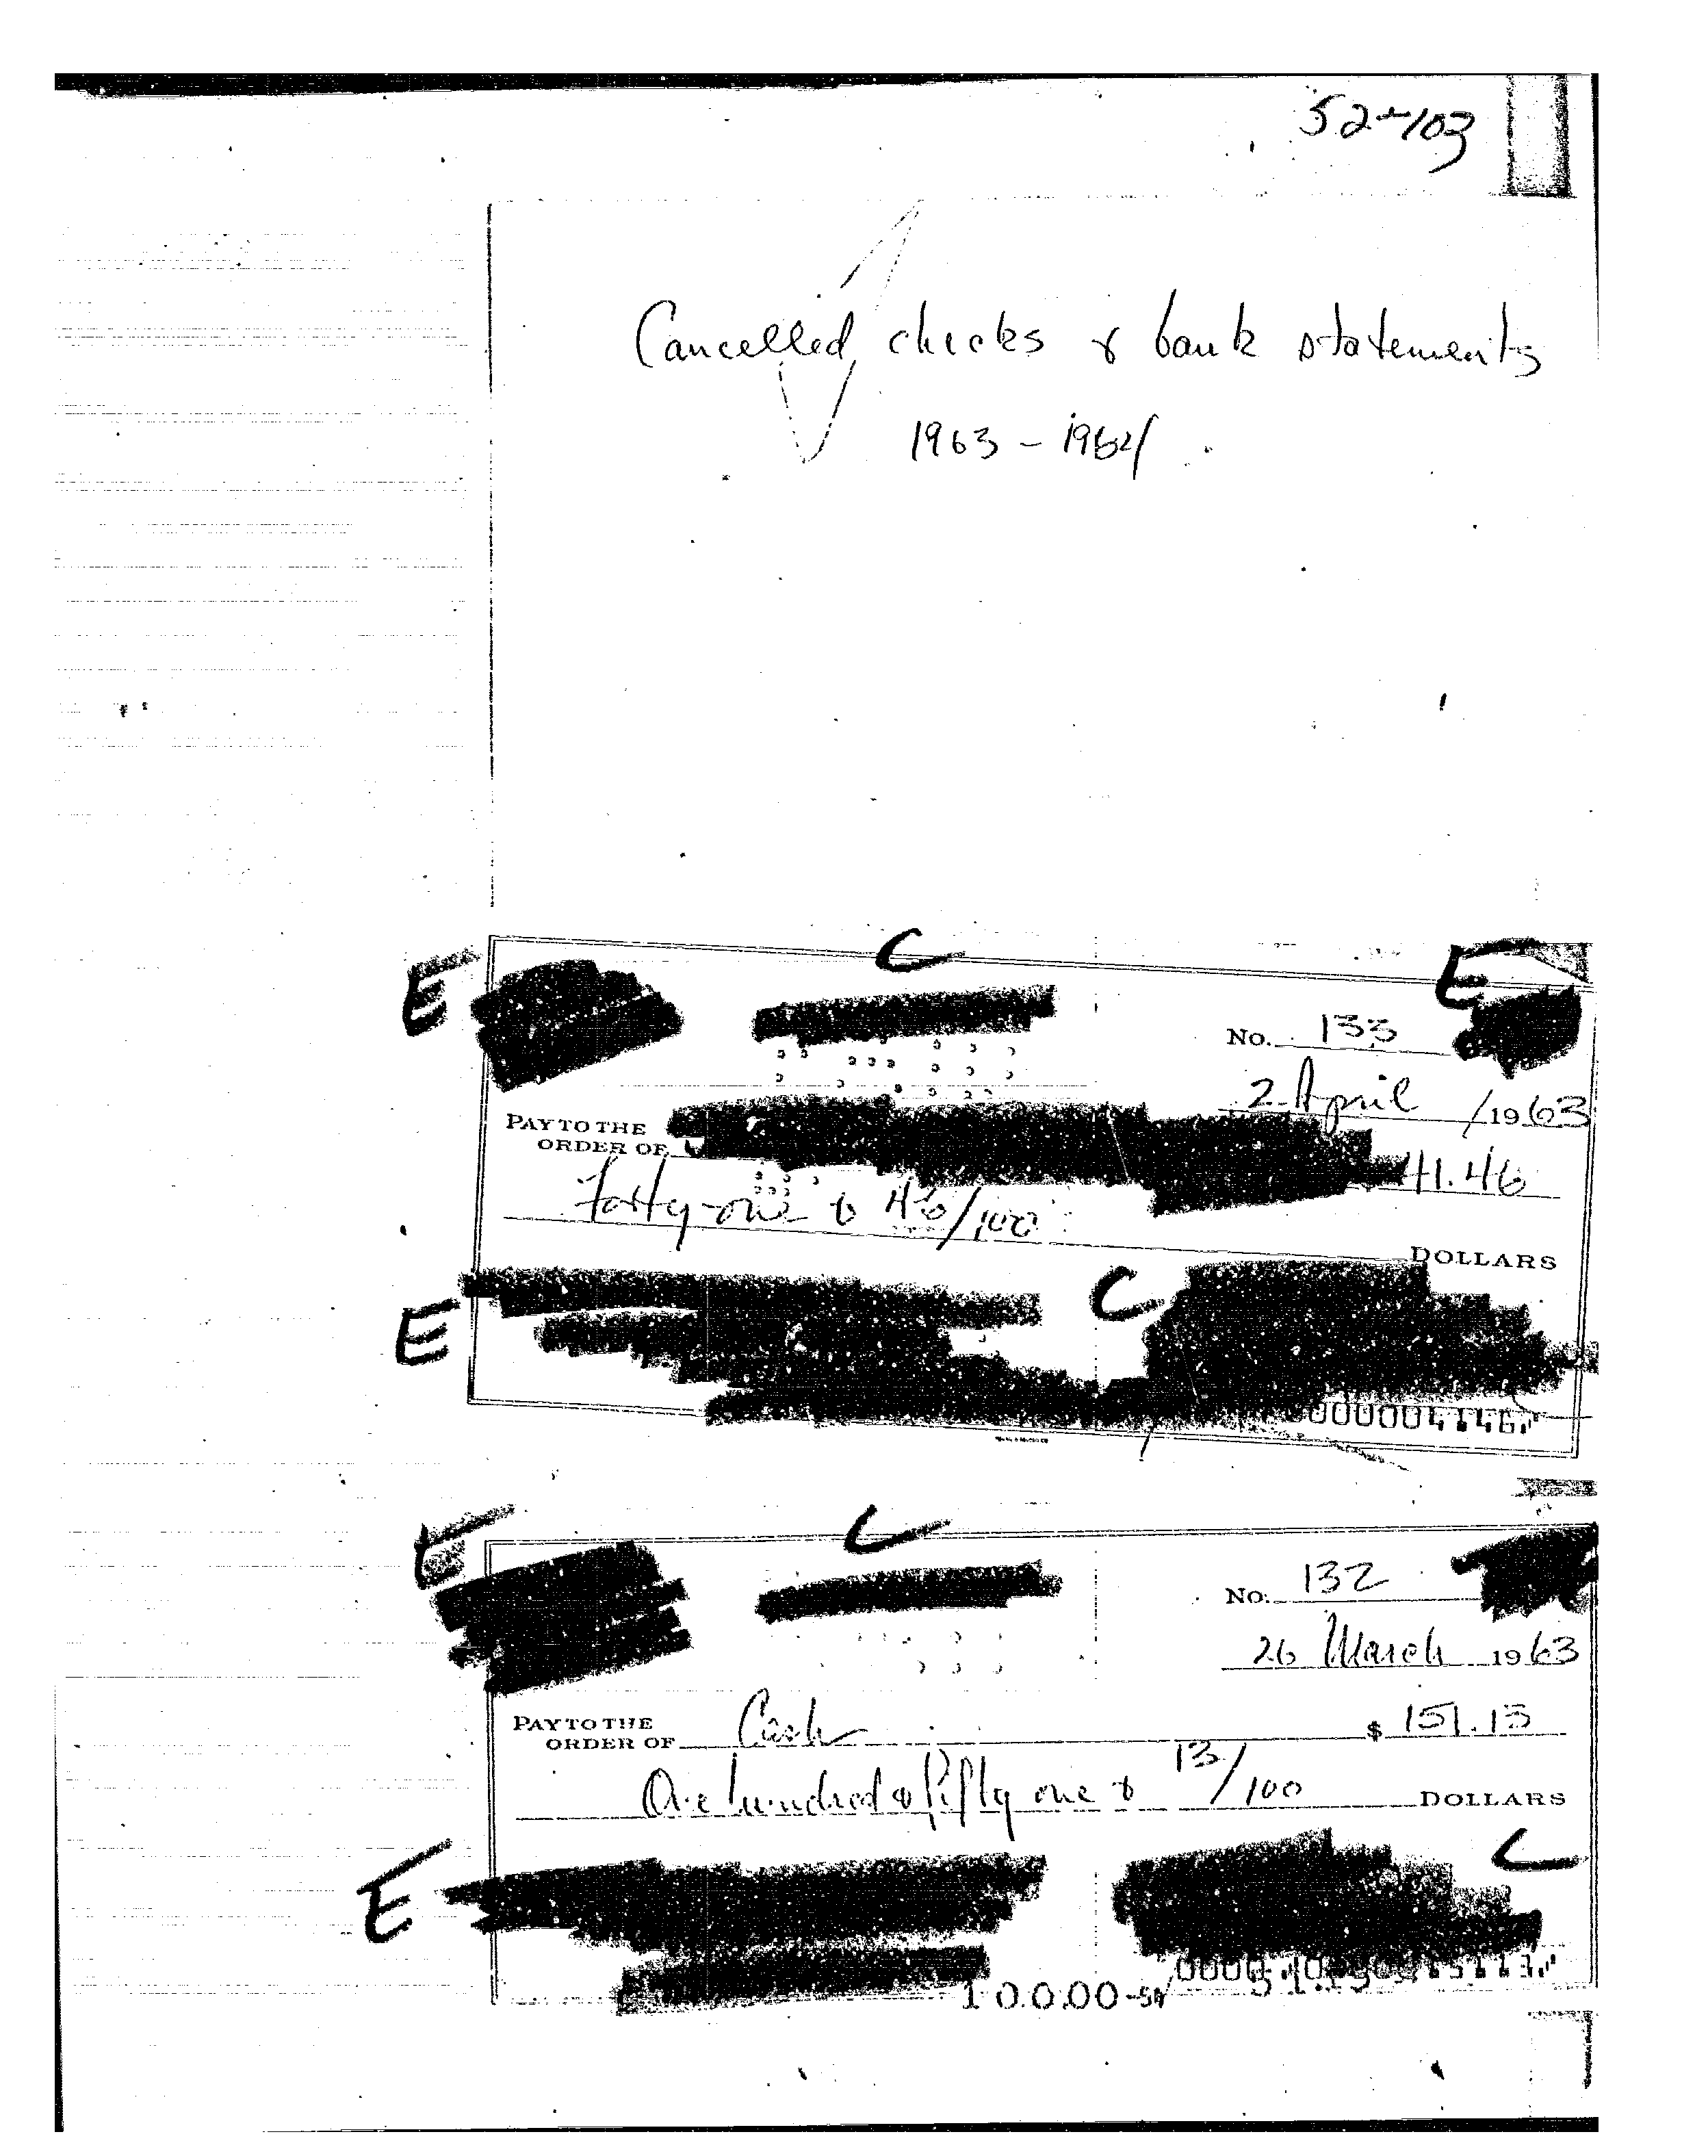 52-103
Cancelled checks & bank statements
1963 - 1964
C
E
E
No. 133
2 April 1963
PAY TO THE
ORDER OF
41.46
Forty-one & 46/100
DOLLARS
E
C
C
E
No. 132
26 March 1963
PAY TO THE
ORDER OF Cash $ 151.13
One hundred & fifty one & 13/100 DOLLARS
C
E
100.00